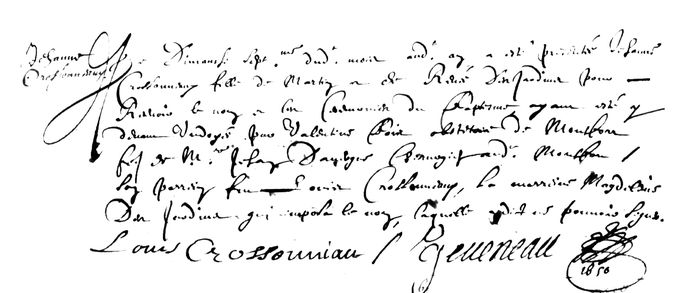 Jehanne
Crossonneau
Le Dimanche sept.me dud. mois aud. an a esté presentée Jehanne
Crossonneau fille de Martin et de Renée Des Jardins pour
Recevoir le nom et les Ceremonies du Baptesme ayant esté cy
devant Ondoyée par Valentine obstetrice de Montbon
de M.re Jehan aud. Montbon
son parrein fut Louis Crossonneau, la marreine Magdelene
Des Jardins qui imposa le nom, laquelle a dit ne pouvoir signer.
Louis Crossonniau / Geueneau
1650